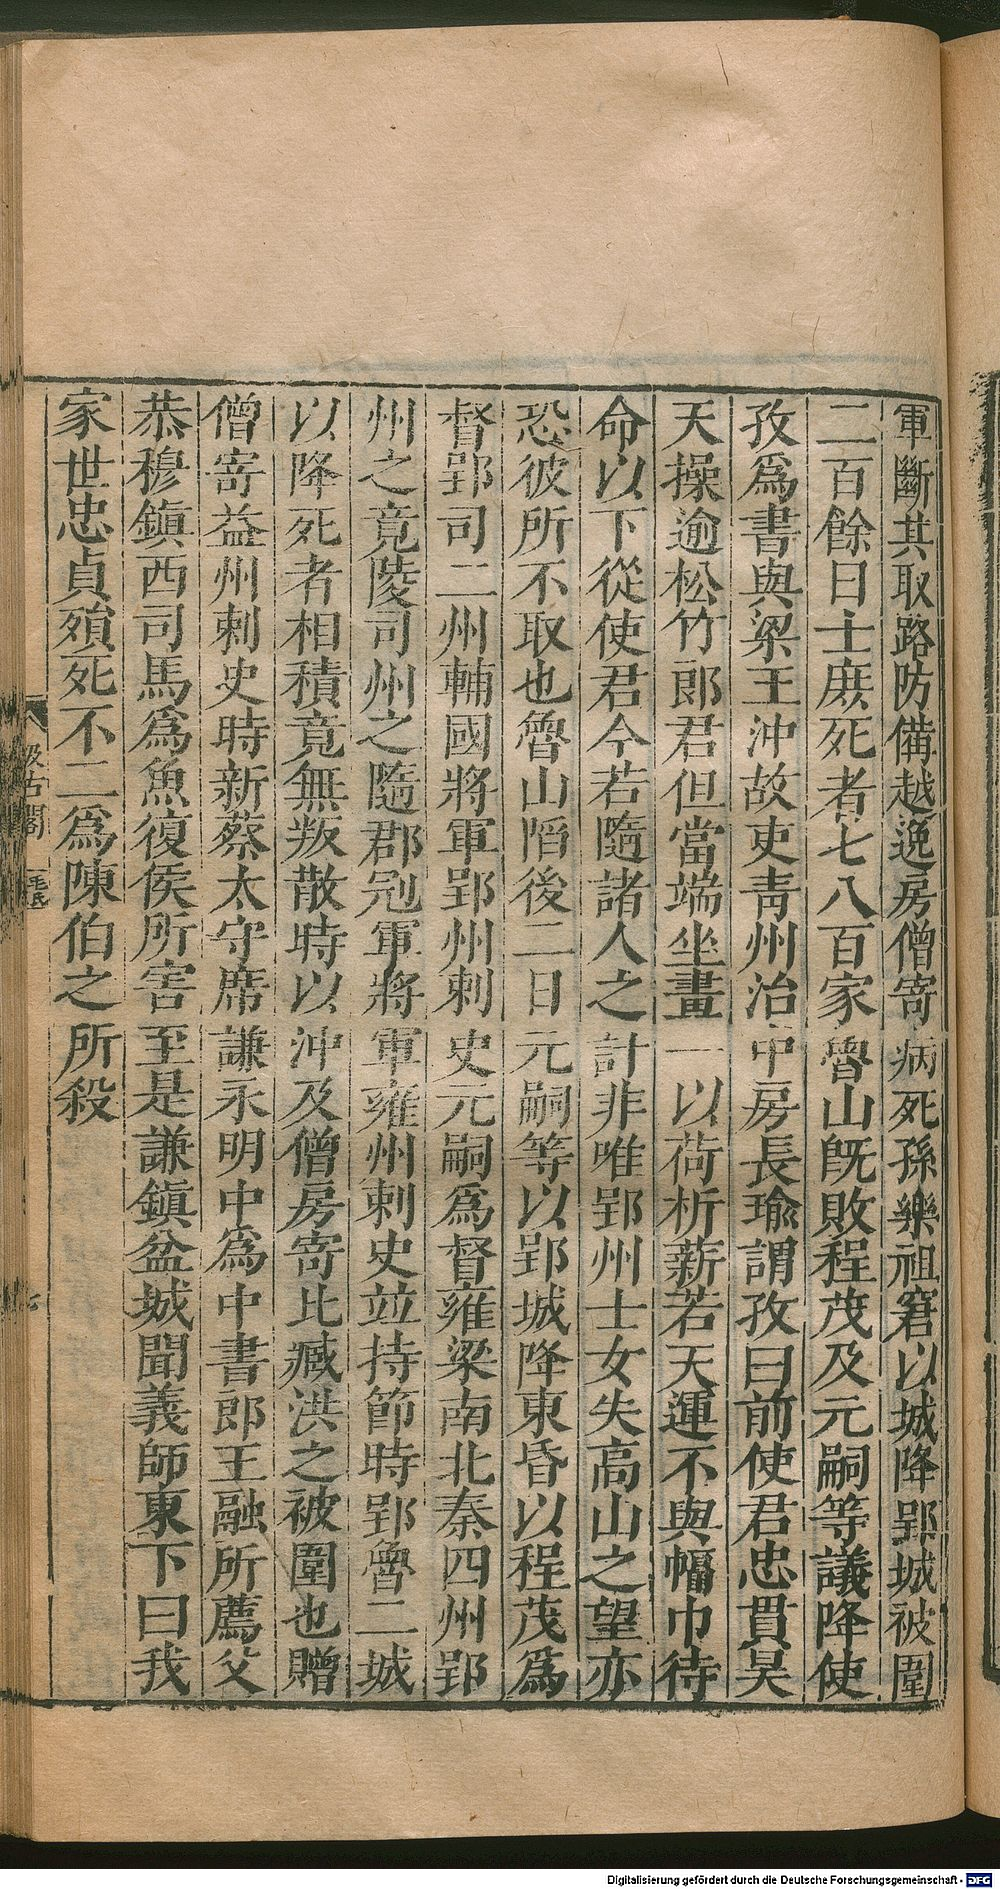 軍斷其取路防備越逸房僧寄病死孫樂祖窘以城降郢城被圍
二百餘日士庶死者七八百家魯山旣敗程茂及元嗣等議降使
孜爲書與梁王沖故吏靑州治中房長瑜謂孜曰前使君忠貫昊
天操逾松竹郎君但當端坐畫一以荷析薪若天運不與幅巾待
命以下從使君今若隨諸人之計非唯郢州士女失高山之望亦
恐彼所不取也魯山䧟後二日元嗣等以郢城降東昏以程茂爲
督郢司二州輔國將軍郢州刺史元嗣爲督雍梁南北秦四州郢
州之竟陵司州之隨郡冠軍將軍雍州刺史竝持節時郢魯二城
以降死者相積竟無叛散時以沖及僧房寄比臧洪之被圍也贈
僧寄益州刺史時新蔡太守席謙永明中爲中書郎王融所薦父
恭穆鎭西司馬爲魚復侯所害至是謙鎭盆城聞義師東下曰我
家世忠貞殞死不二爲陳伯之所殺
汲古閣
毛氏
七
Digitalisierung gefördert durch die Deutsche Forschungsgemeinschaft - DFG